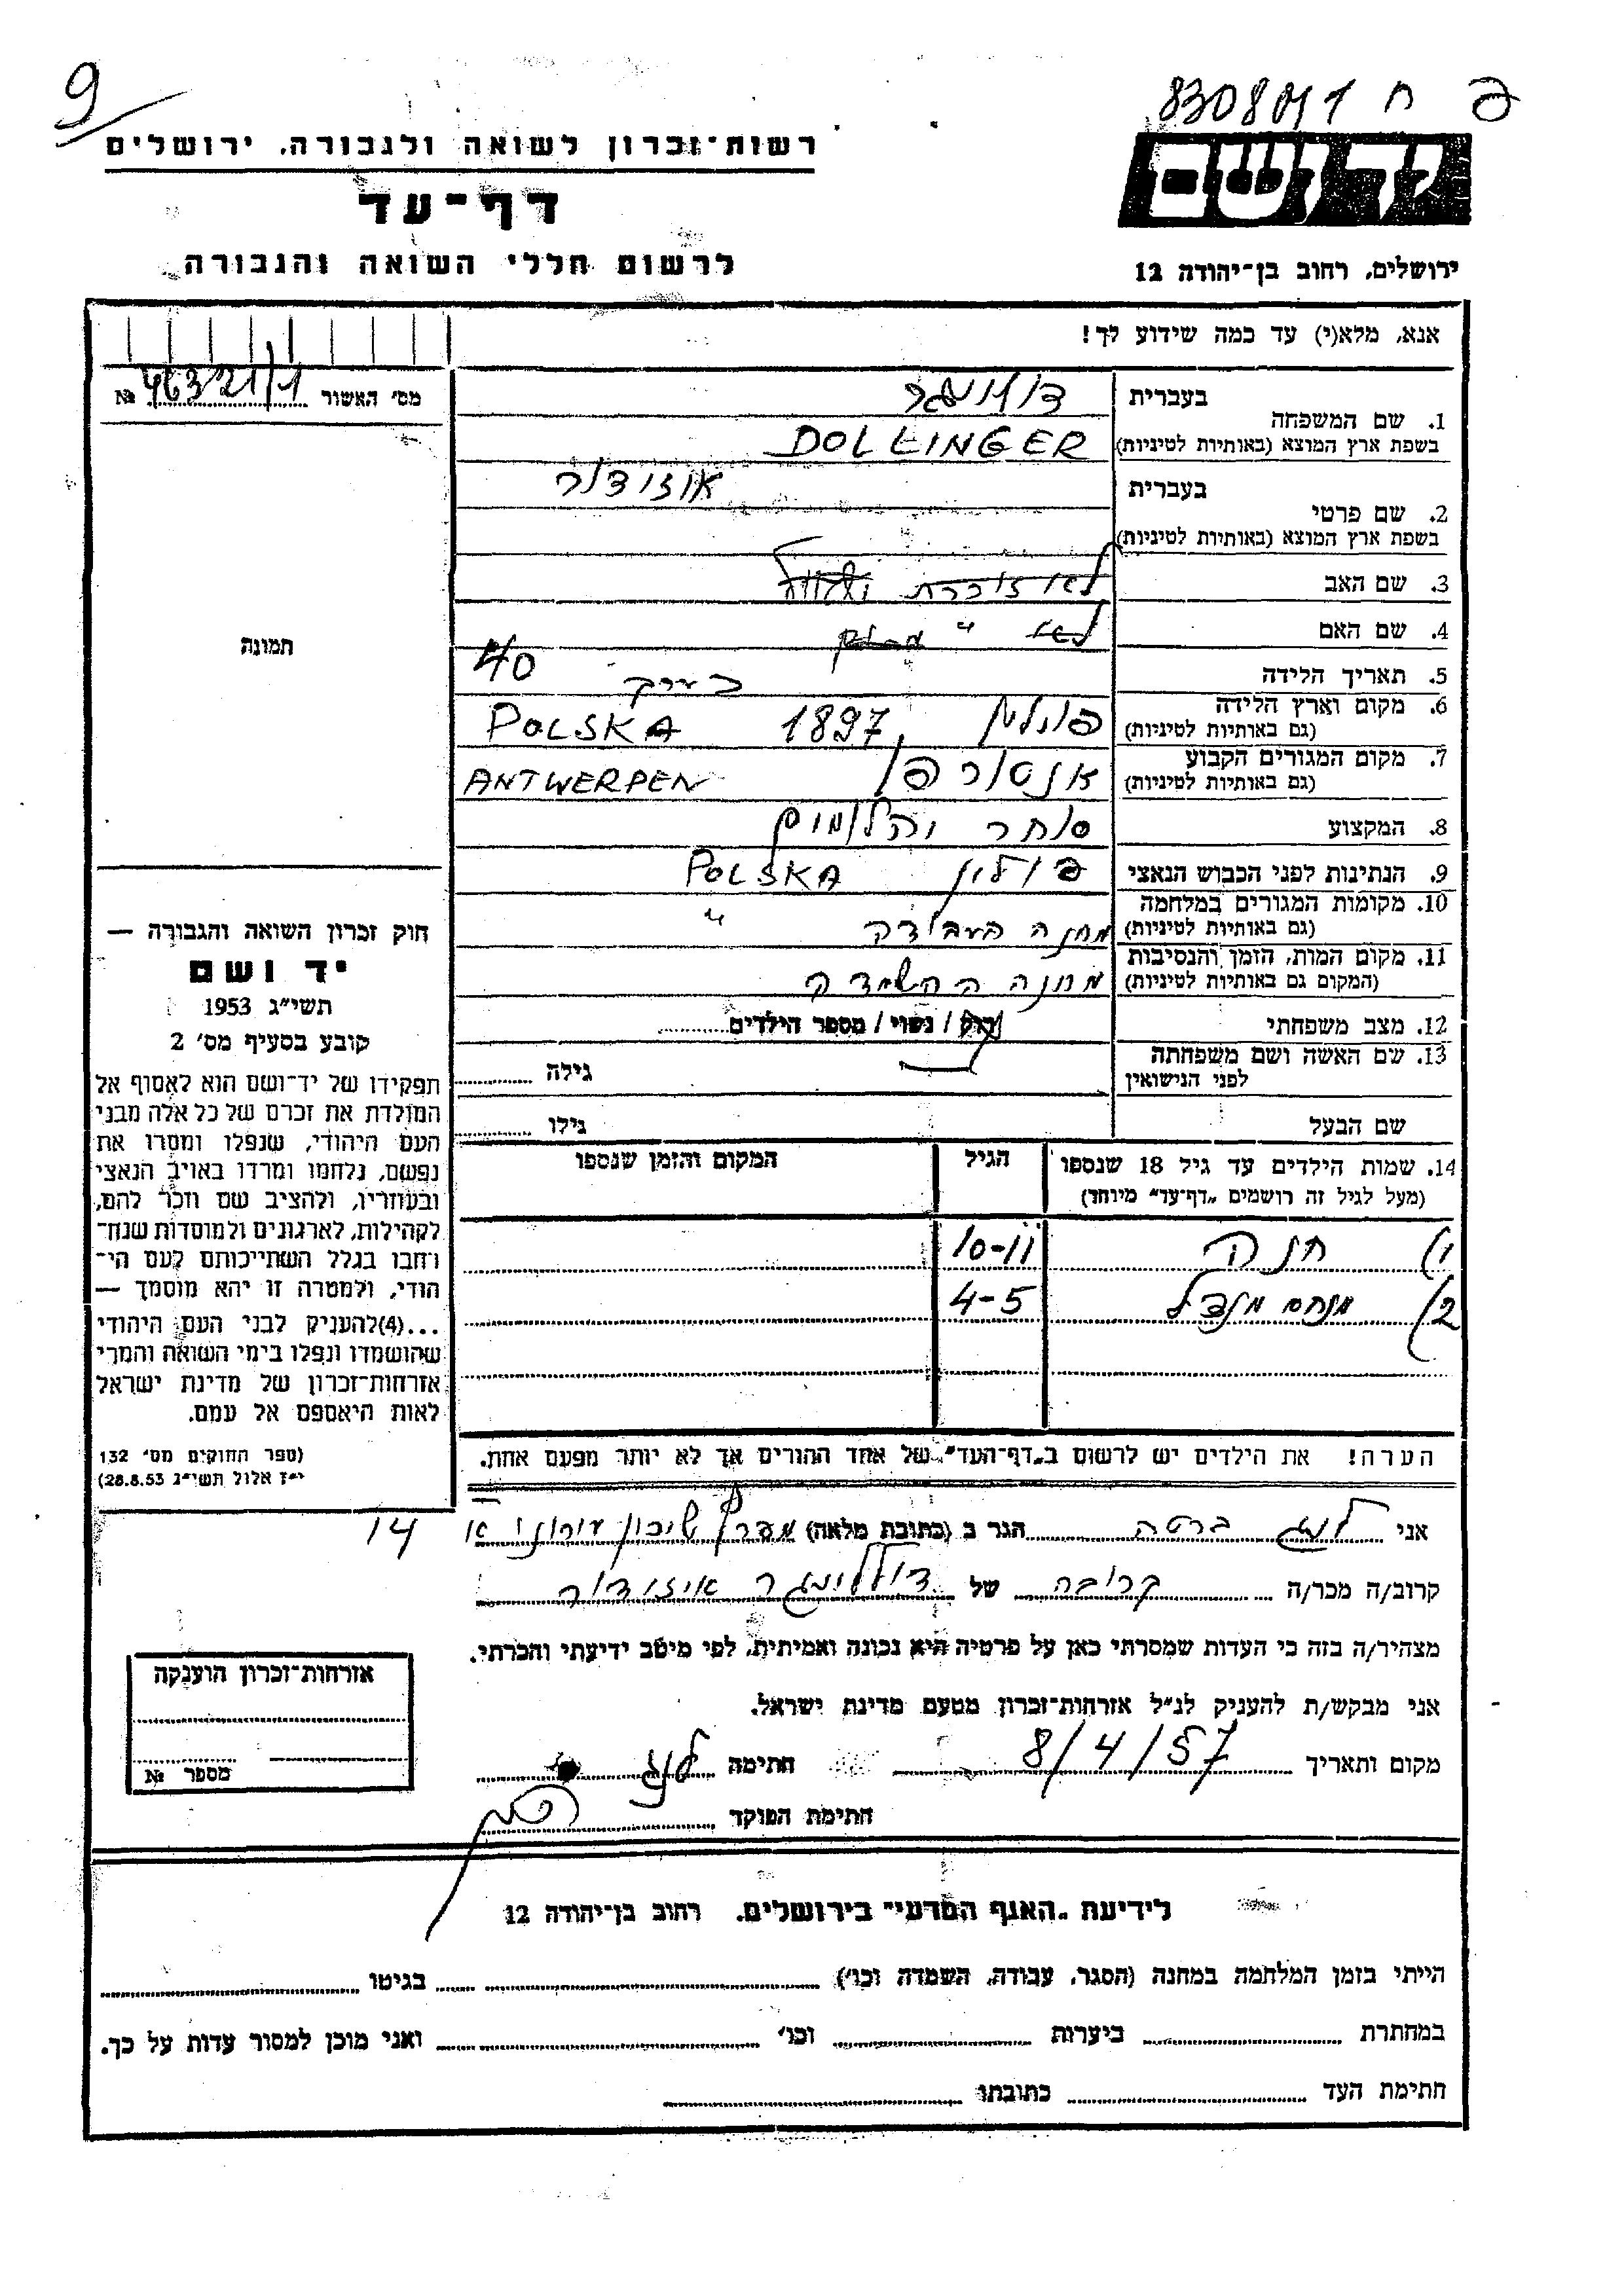 9
8308041 ח פ
רשות־זכרון לשואה ולגבורה, ירושלים
דף־עד
לרשום חללי השואה והגבורה
יד ושם
ירושלים, רחוב בן־יהודה 12
אנא, מלא(י) עד כמה שידוע לך!
מס' האשור № 463/21/1
תמונה
1. שם המשפחה
בעברית דולינגר
בשפת ארץ המוצא (באותיות לטיניות) DOLLINGER
2. שם פרטי
בעברית איזידור
בשפת ארץ המוצא (באותיות לטיניות)
3. שם האב לא זוכרת
4. שם האם לא "
5. תאריך הלידה בערך 40
6. מקום וארץ הלידה (גם באותיות לטיניות) פולין 1897 POLSKA
7. מקום המגורים הקבוע (גם באותיות לטיניות) אנטורפן ANTWERPEN
8. המקצוע סוחר יהלומים
9. הנתינות לפני הכבוש הנאצי פולין POLSKA
10. מקומות המגורים במלחמה (גם באותיות לטיניות) מחנה העבודה "
11. מקום המות, הזמן והנסיבות (המקום גם באותיות לטיניות) מחנה השמדה
12. מצב משפחתי רוק / נשוי / מספר הילדים
13. שם האשה ושם משפחתה לפני הנישואין גילה
שם הבעל גילו
14. שמות הילדים עד גיל 18 שנספו הגיל המקום והזמן שנספו
(מעל לגיל זה רושמים „דף־עד" מיוחד)
1) חנה 10-11
2) מנחם מנדל 4-5
הערה! את הילדים יש לרשום ב„דף־העד" של אחד ההורים אך לא יותר מפעם אחת.
חוק זכרון השואה והגבורה —
יד ושם
תשי"ג 1953
קובע בסעיף מס' 2
תפקידו של יד־ושם הוא לאסוף אל
המולדת את זכרם של כל אלה מבני
העם היהודי, שנפלו ומסרו את
נפשם, נלחמו ומרדו באויב הנאצי
ובעוזריו, ולהציב שם וזכר להם,
לקהילות, לארגונים ולמוסדות שנח־
רחבו בגלל השתייכותם לעם הי־
הודי, ולמטרה זו יהא מוסמך —
...(4)להעניק לבני העם היהודי
שהושמדו ונפלו בימי השואה והמרי
אזרחות־זכרון של מדינת ישראל
לאות היאספם אל עמם.
(ספר החוקים מס' 132
י"ז אלול תשי"ג 28.8.53)
אני לנג ברטה הגר ב (כתובת מלאה) שיכון עירוני 14
קרוב/ה מכר/ה קרובה של דוללינגר איזידור
מצהיר/ה בזה כי העדות שמסרתי כאן על פרטיה היא נכונה ואמיתית, לפי מיטב ידיעתי והכרתי.
אני מבקש/ת להעניק לנ"ל אזרחות־זכרון מטעם מדינת ישראל.
מקום ותאריך 8/4/57 חתימה לנג
חתימת הפוקד
אזרחות־זכרון הוענקה
מספר №
לידיעת „האגף המדעי" בירושלים, רחוב בן־יהודה 12
הייתי בזמן המלחמה במחנה (הסגר, עבודה, השמדה וכו') בגיטו
במחתרת ביערות וכו' ואני מוכן למסור עדות על כך.
חתימת העד כתובתו